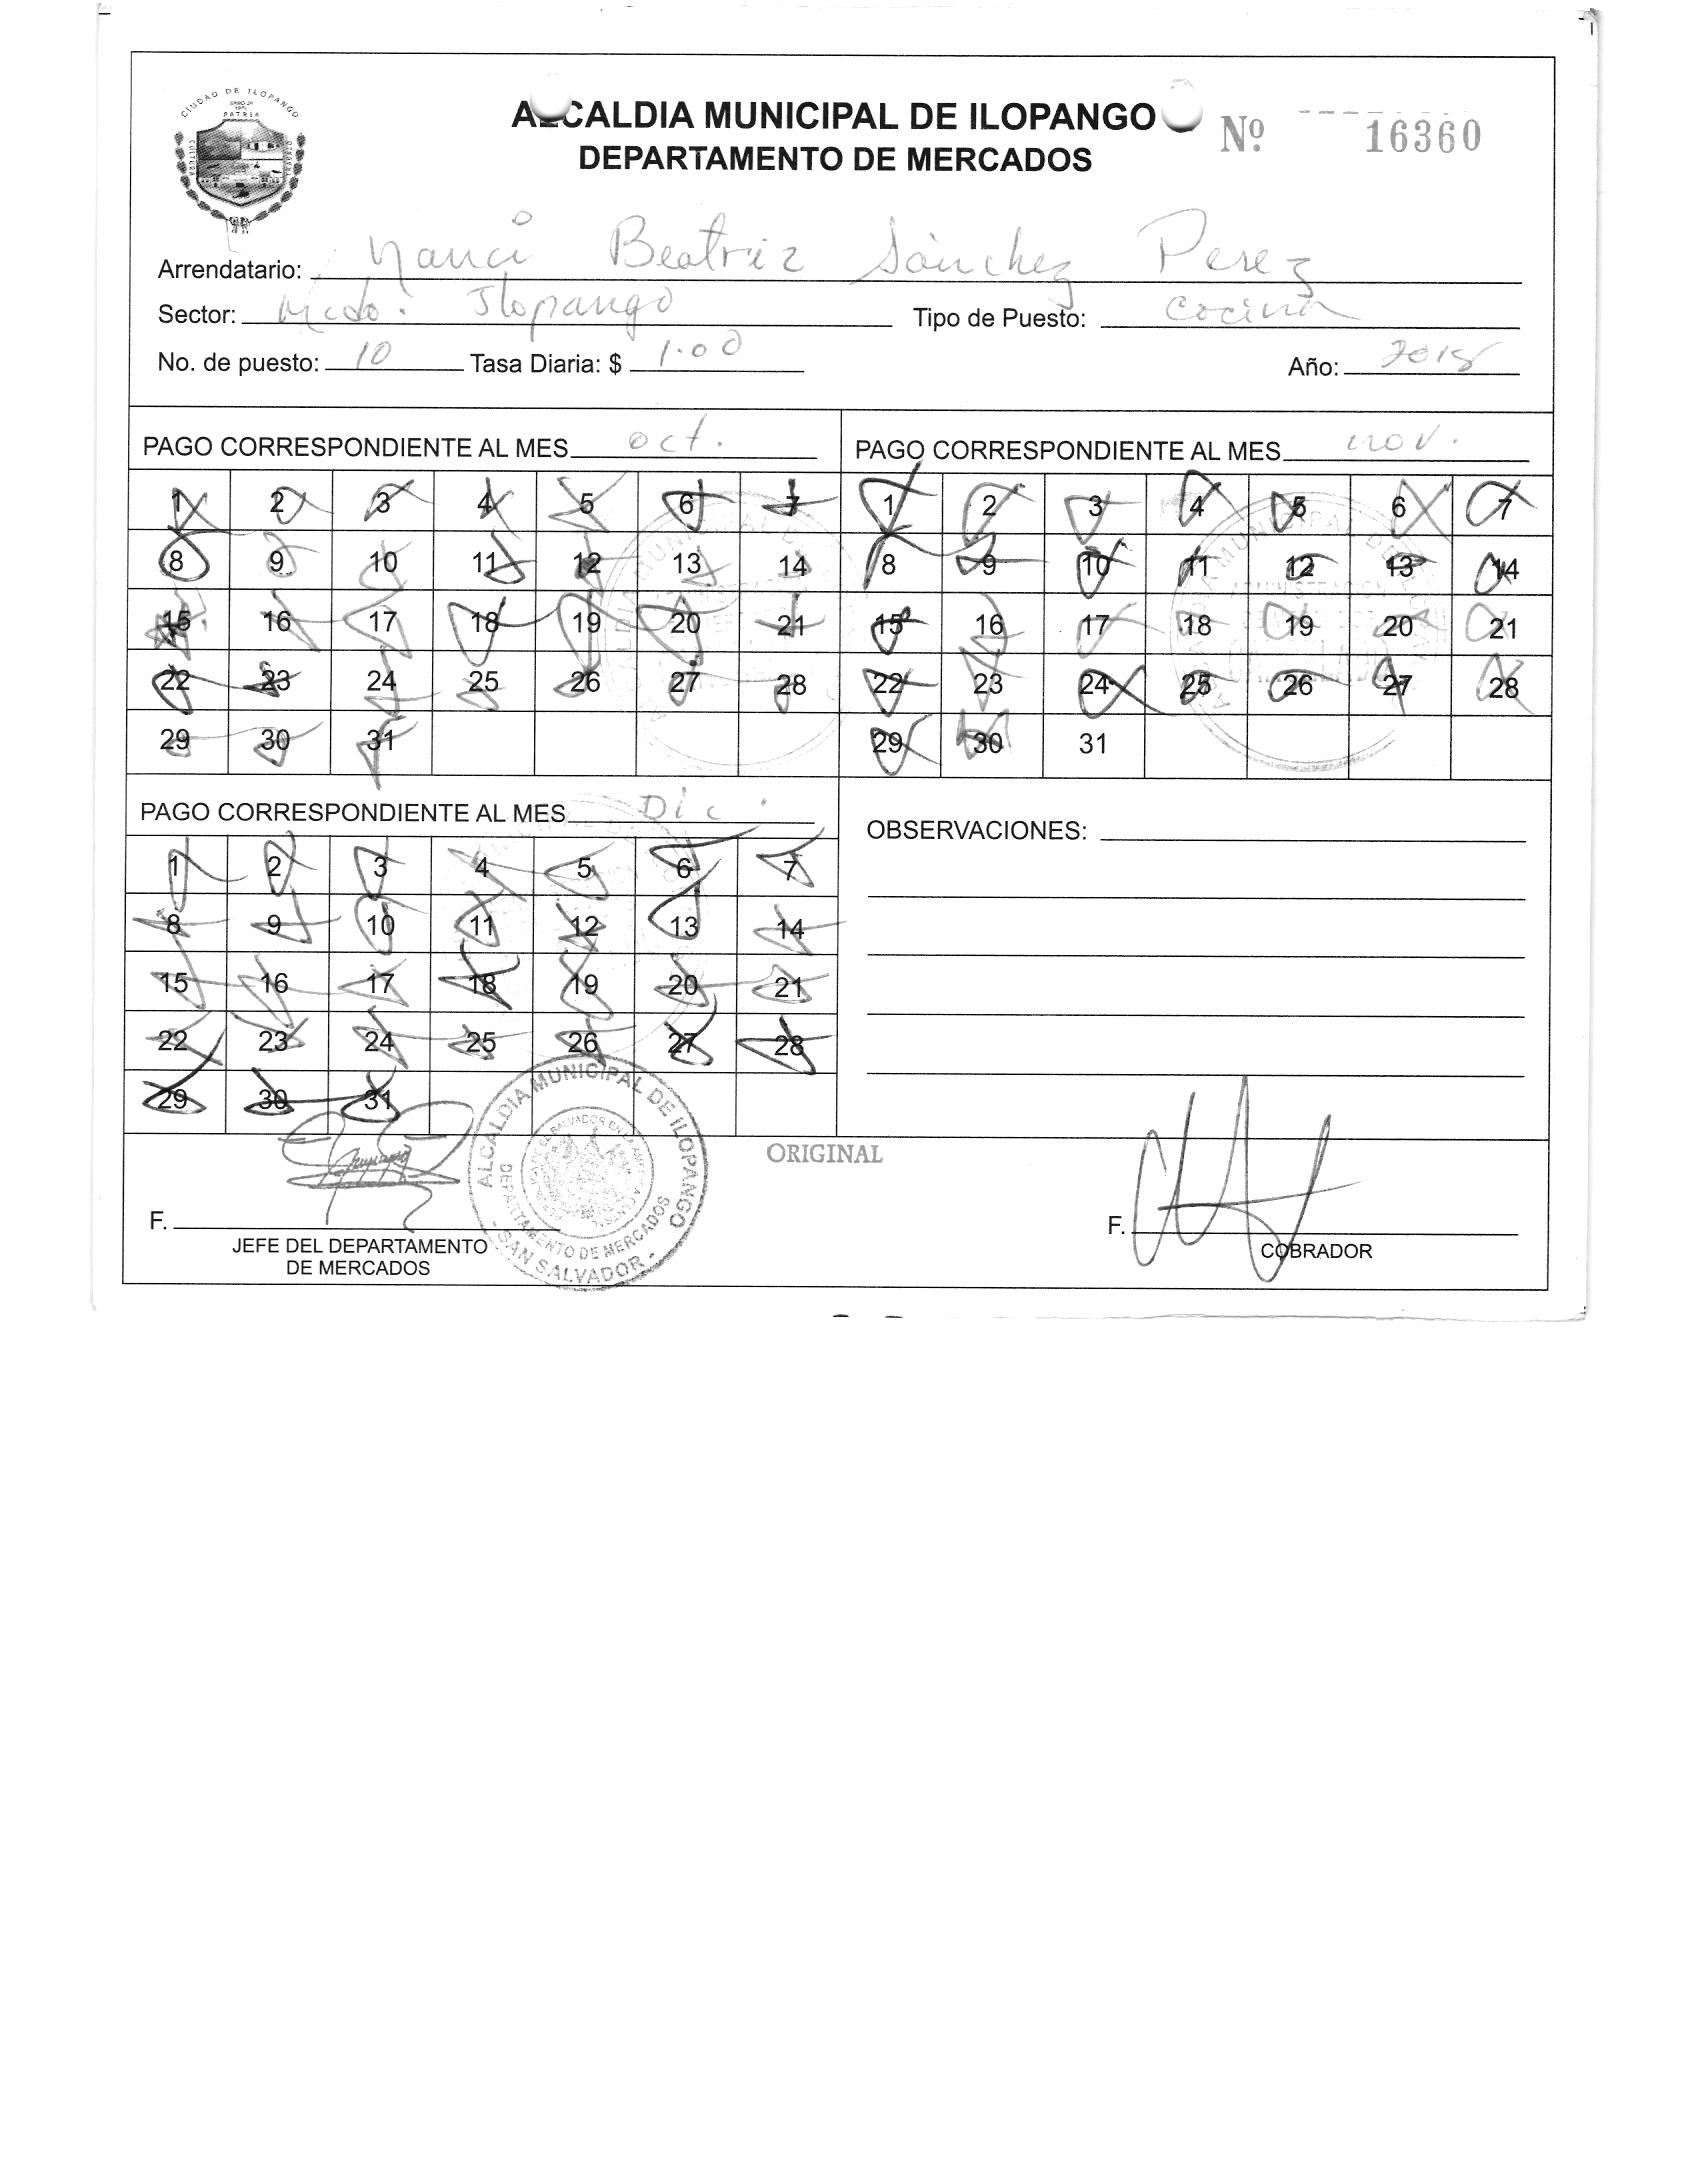 CIUDAD DE ILOPANGO
PATRIA
CULTURA
ALCALDIA MUNICIPAL DE ILOPANGO
Nº 16360
DEPARTAMENTO DE MERCADOS
Arrendatario: Nanci Beatriz Sánchez Perez
Sector: Mcdo. Ilopango Tipo de Puesto: Cocina
No. de puesto: 10 Tasa Diaria: $ 1.00 Año: 2018
PAGO CORRESPONDIENTE AL MES oct.
1 2 3 4 5 6 7
8 9 10 11 12 13 14
15 16 17 18 19 20 21
22 23 24 25 26 27 28
29 30 31
PAGO CORRESPONDIENTE AL MES nov.
1 2 3 4 5 6 7
8 9 10 11 12 13 14
15 16 17 18 19 20 21
22 23 24 25 26 27 28
29 30 31
PAGO CORRESPONDIENTE AL MES Dic.
1 2 3 4 5 6 7
8 9 10 11 12 13 14
15 16 17 18 19 20 21
22 23 24 25 26 27 28
29 30 31
OBSERVACIONES:
ORIGINAL
F.
JEFE DEL DEPARTAMENTO
DE MERCADOS
ALCALDIA MUNICIPAL DE ILOPANGO
DEPARTAMENTO DE MERCADOS
- SAN SALVADOR -
F.
COBRADOR